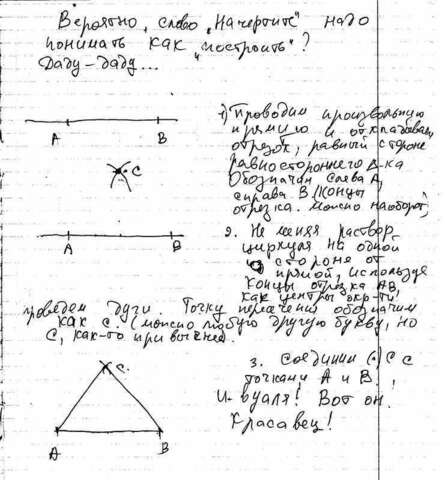 Вероятно, слово „Начертить" надо
понимать как „построить"?
Даду-даду...
A B
1) Проводим произвольную
прямую и откладываем
отрезок, равный стороне
равностороннего Δ-ка
Обозначим слева A,
справа B /концы
отрезка. можно наоборот/
C
A B
2. Не меняя раствор
циркуля на одной
стороне от
прямой, используя
концы отрезка AB,
как центры окр-ти
проведем дуги. Точку пересечения обозначим
как C. (можно любую другую букву, но
C, как-то привычнее.
3. Соединим (•) C с
точками A и B.
И-вуаля! Вот он!
Красавец!
C.
A B